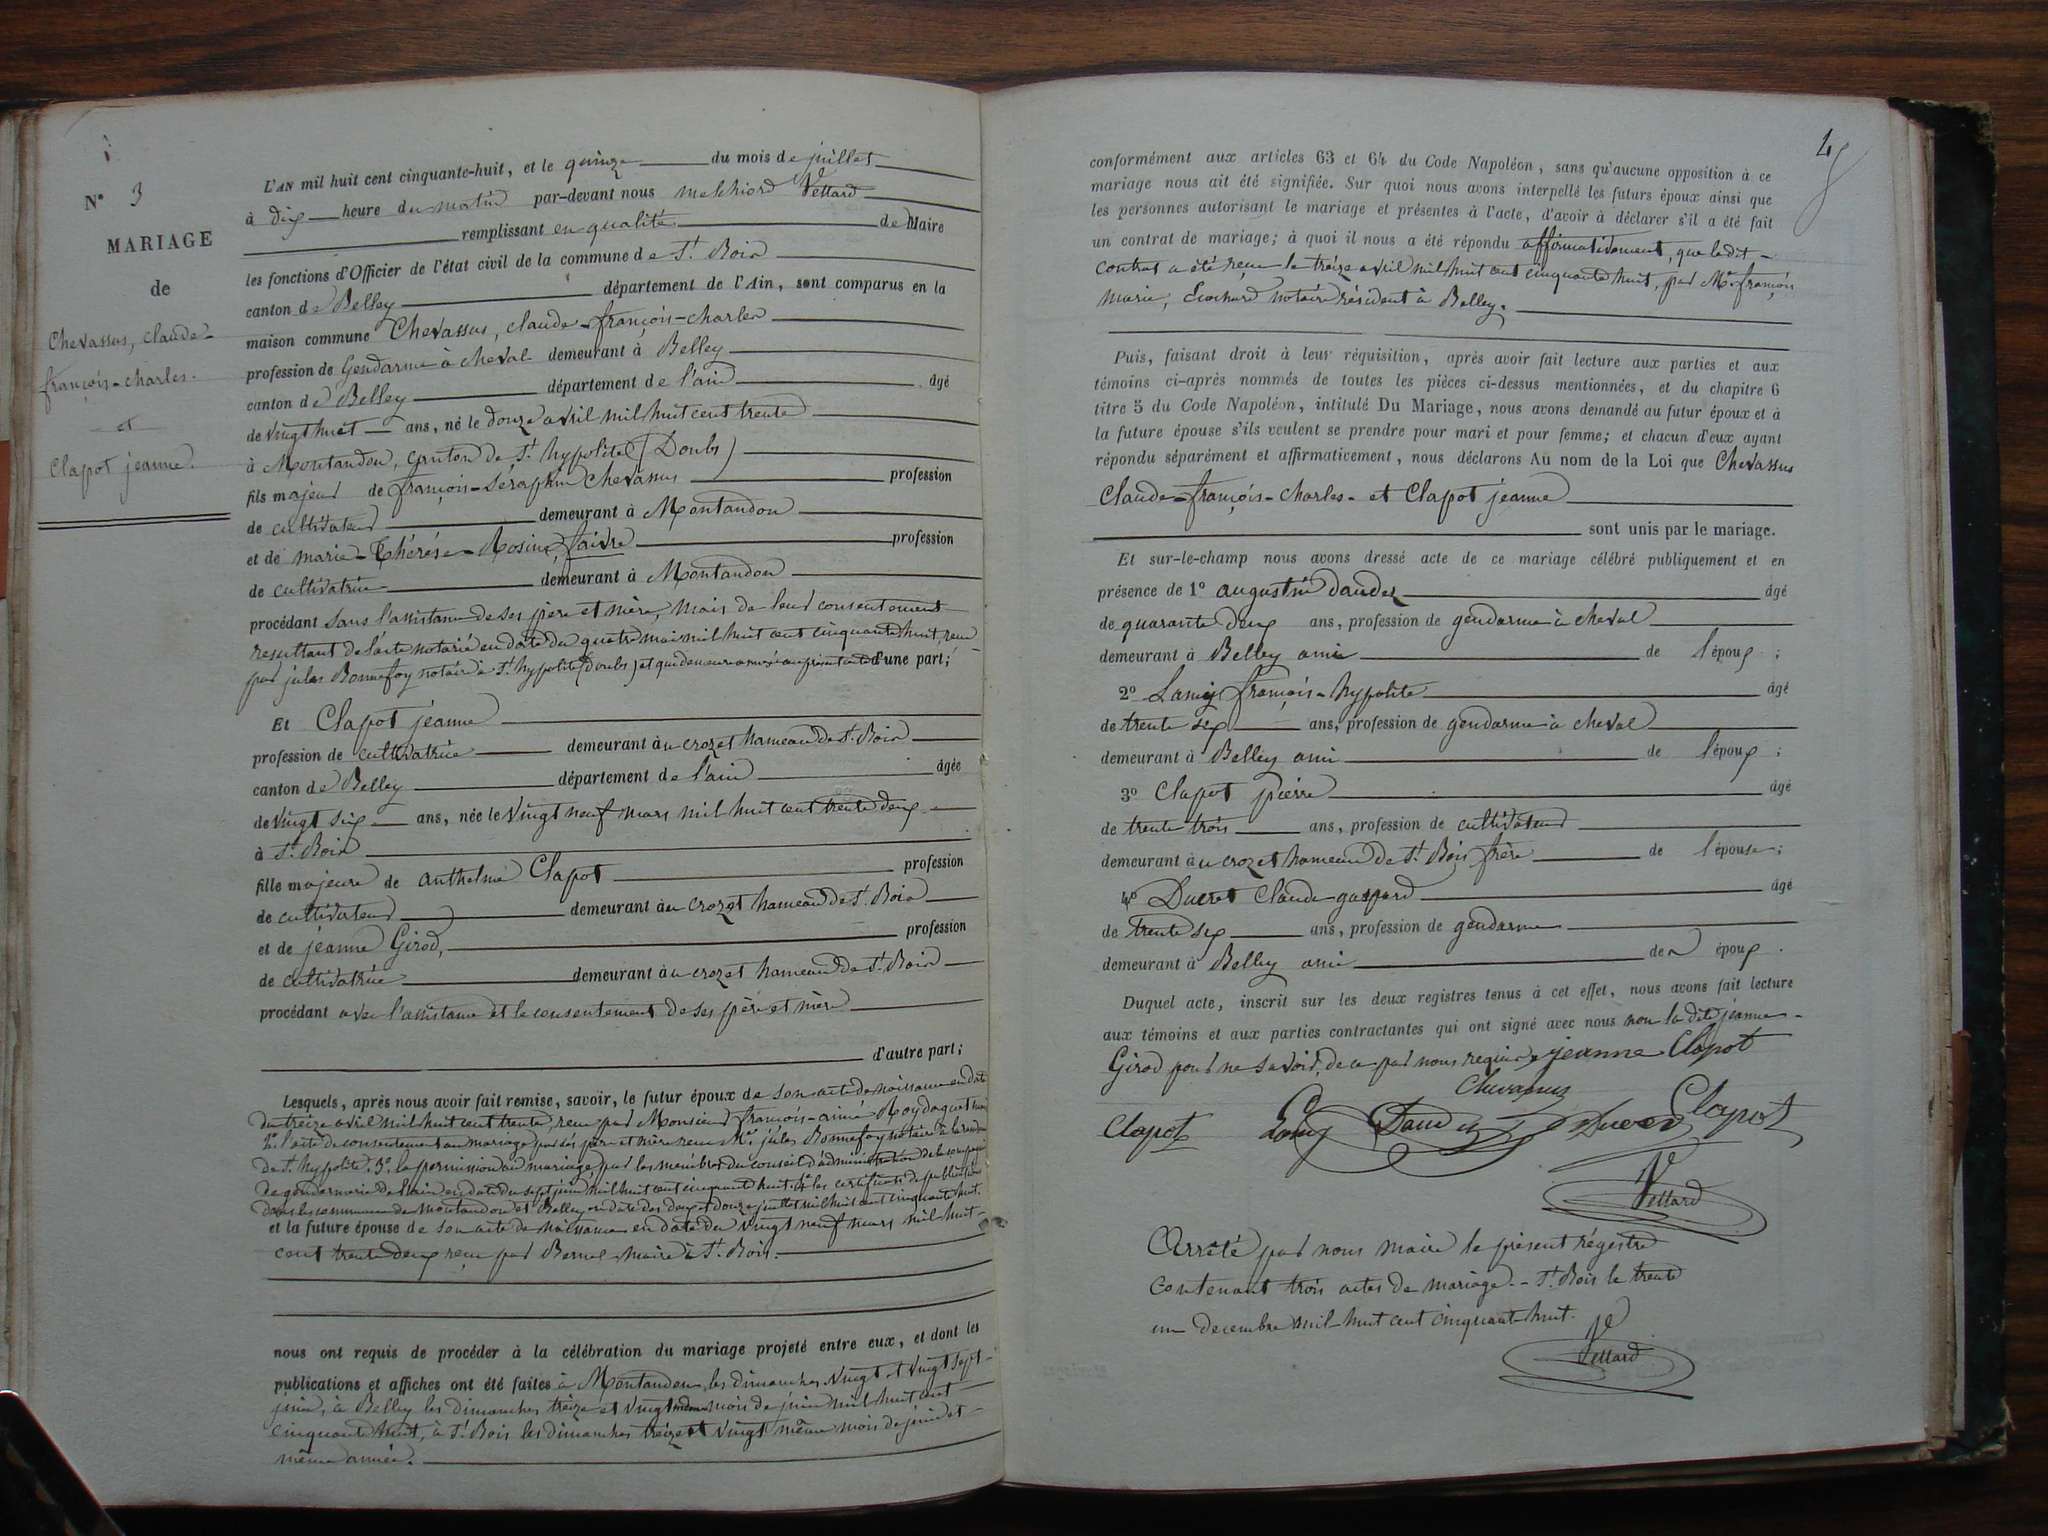 N° 3
MARIAGE
de
Chevassus, Claude-
françois-charles.
et
Clapot jeanne.
L'AN mil huit cent cinquante-huit, et le quinze du mois de juillet
à dix heure du matin par-devant nous melchiord Vettard
remplissant en qualité de Maire
les fonctions d'Officier de l'état civil de la commune de St. Bois
canton de Belley département de l'Ain, sont comparus en la
maison commune Chevassus, claude-françois-charles
profession de Gendarme à cheval demeurant à Belley
canton de Belley département de l'ain âgé
de vingt huit ans, né le douze avril mil huit cent trente
à Montandon, canton de St. hypolite (Doubs)
fils majeur de françois-Séraphin Chevassus profession
de cultivateur demeurant à Montandon
et de marie-Thérése-Rosine faivre profession
de cultivatrice demeurant à Montandon
procédant sans l'assistance de ses père et mère, mais de leur consentement
resultant de l'acte notarié en date du quatre mai mil huit cent cinquante huit, reçu
par jules Bonnefoy notaire à St. hypolite (Doubs) et qui demeure annexé au présent acte d'une part;
Et Clapot jeanne
profession de cultivatrice demeurant à u crozet hameau de St. Bois
canton de Belley département de l'ain âgée
de vingt six ans, née le vingt neuf mars mil huit cent trente deux
à St. Bois
fille majeure de anthelme Clapot profession
de cultivateur demeurant à u crozet hameau de St. Bois
et de jeanne Girod, profession
de cultivatrice demeurant à u crozet hameau de St. Bois
procédant avec l'assistance et le consentement de ses père et mère
d'autre part;
Lesquels, après nous avoir fait remise, savoir, le futur époux de son acte de naissance en date
du treize avril mil huit cent trente, reçu par Monsieur françois-aimé Roydoquet
2° l'acte de consentement au mariage par ses père et mère reçu Me. jules Bonnefoy notaire à la
de St. hypolite. 3° la permission au mariage, par les membres du conseil d'administration de la compagnie
de gendarmerie de l'ain en date du sept juin mil huit cent cinquante huit. 4° les certificats de publication
dans les communes de Montandon et Belley en date des deux et douze juillet mil huit cent cinquante huit.
et la future épouse de son acte de naissance en date du vingt neuf mars mil huit-
cent trente deux reçu par Bernel maire à St. Bois.
nous ont requis de procéder à la célébration du mariage projeté entre eux, et dont les
publications et affiches ont été faites à Montandon, les dimanches vingt et vingt sept-
juin, à Belley les dimanches treize et vingt même mois de juin mil huit cent
cinquante huit, à St. Bois les dimanches treize et vingt même mois de juin et
même année.
conformément aux articles 63 et 64 du Code Napoléon, sans qu'aucune opposition à ce
mariage nous ait été signifiée. Sur quoi nous avons interpellé les futurs époux ainsi que
les personnes autorisant le mariage et présentes à l'acte, d'avoir à déclarer s'il a été fait
un contrat de mariage; à quoi il nous a été répondu affirmativement, que ledit
contrat a été reçu le treize avril mil huit cent cinquante huit, par Me. françois
marie, Ecochard notaire résident à Belley.
Puis, faisant droit à leur réquisition, après avoir fait lecture aux parties et aux
témoins ci-après nommés de toutes les pièces ci-dessus mentionnées, et du chapitre 6
titre 5 du Code Napoléon, intitulé Du Mariage, nous avons demandé au futur époux et à
la future épouse s'ils veulent se prendre pour mari et pour femme; et chacun d'eux ayant
répondu séparément et affirmativement, nous déclarons Au nom de la Loi que Chevassus
Claude-françois-charles- et Clapot jeanne
sont unis par le mariage.
Et sur-le-champ nous avons dressé acte de ce mariage célébré publiquement et en
présence de 1° augustin daudez âgé
de quarante deux ans, profession de gendarme à cheval
demeurant à Belley ami de l'époux;
2° Lamy françois-hypolite âgé
de trente six ans, profession de gendarme à cheval
demeurant à Belley ami de l'époux;
3° Clapot pierre âgé
de trente trois ans, profession de cultivateur
demeurant à u crozet hameau de St. Bois frère de l'épouse;
4° Ducret Claude-gaspard âgé
de trente six ans, profession de gendarme
demeurant à Belley ami de l'époux.
Duquel acte, inscrit sur les deux registres tenus à cet effet, nous avons fait lecture
aux témoins et aux parties contractantes qui ont signé avec nous non la dite jeanne
Girod pour ne savoir, de ce par nous requise jeanne Clapot
Chevassus
Clapot Lamy Daudez Ducret Clapot
Vettard
Arrêté par nous maire le présent régistre
contenant trois actes de mariage. - St. Bois le trente
un decembre mil huit cent cinquante huit.
Vettard